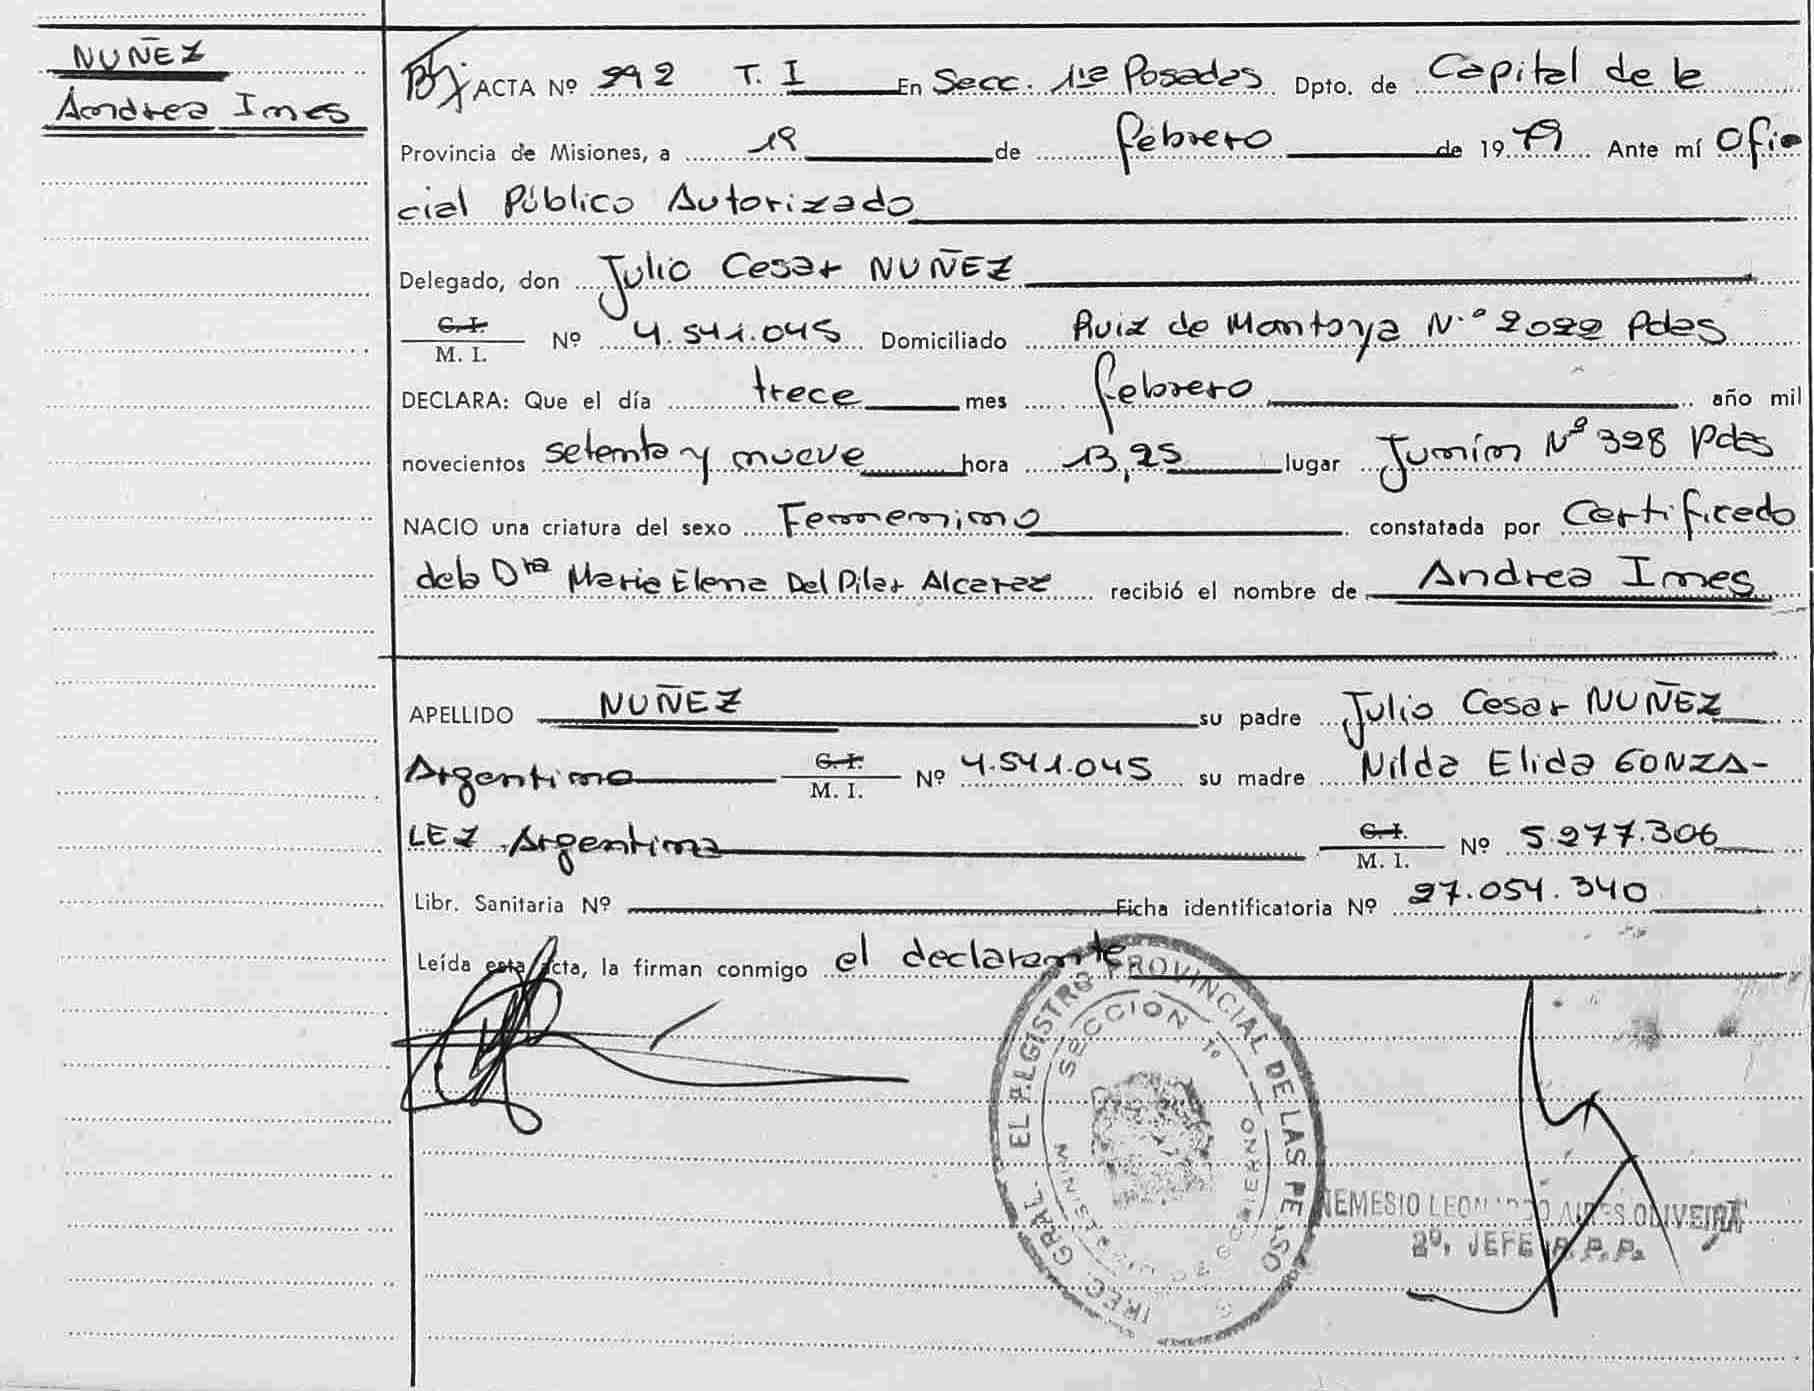 NUÑEZ
Andrea Ines
ACTA Nº 292 T. I En Secc. 1ra Posadas Dpto. de Capital de la
Provincia de Misiones, a 19 de febrero de 1979 Ante mí Ofi-
cial Público Autorizado
Delegado, don Julio Cesar NUÑEZ
C. I.
M. I. Nº 4.541.045 Domiciliado Ruiz de Montoya N.º 2022 Pdas
DECLARA: Que el día trece mes febrero año mil
novecientos setenta y nueve hora 13,25 lugar Junín Nº 328 Pdas
NACIO una criatura del sexo Femenino constatada por Certificado
dela Dra Maria Elena Del Pilar Alcaraz recibió el nombre de Andrea Ines
APELLIDO NUÑEZ su padre Julio Cesar NUÑEZ
Argentino C. I. M. I. Nº 4.541.045 su madre Nilda Elida GONZA-
LEZ Argentina C. I. M. I. Nº 5.277.306
Libr. Sanitaria Nº Ficha identificatoria Nº 27.054.340
Leída esta acta, la firman conmigo el declarante
GRAL. EL REGISTRO PROVINCIAL DE LAS PE SO
SECCION 1º
MINIST GOBIERNO
NEMESIO LEONARDO AIRES OLIVEIRA
2º. JEFE R. P. P.